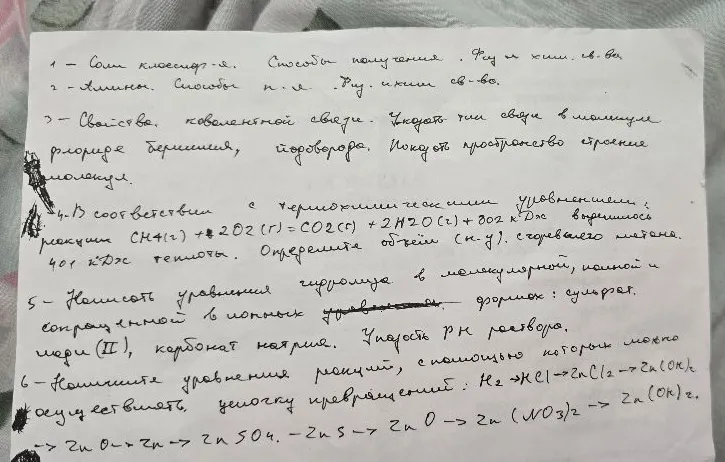 1 - Соли классиф-я. Способы получения. Физ и хим. св-ва.
2 - Амины. Способы п-я. Физ. и хим св-ва.
3 - Свойства ковалентной связи. Указать тип связи в молекуле
флориде бериллия, йодоводорода. Показать пространство строение
молекул.
4. В соответствии с термохимическими уравнением:
реакции CH4(г) + 2O2(г) = CO2(г) + 2H2O(г) + 802 кДж выделилось
401 кДж теплоты. Определите объём (н.у). сгоревшего метана.
5 - Написать уравнения гидролиза в молекулярной, полной и
сокращенной в ионных формах: сульфат.
меди (II), карбонат натрия. Указать PH раствора.
6 - Напишите уравнения реакций, с помощью которых можно
осуществлять цепочку превращений: H2 → HCl → ZnCl2 → Zn(OH)2
→ ZnO → Zn → ZnSO4. - ZnS → ZnO → Zn(NO3)2 → Zn(OH)2.